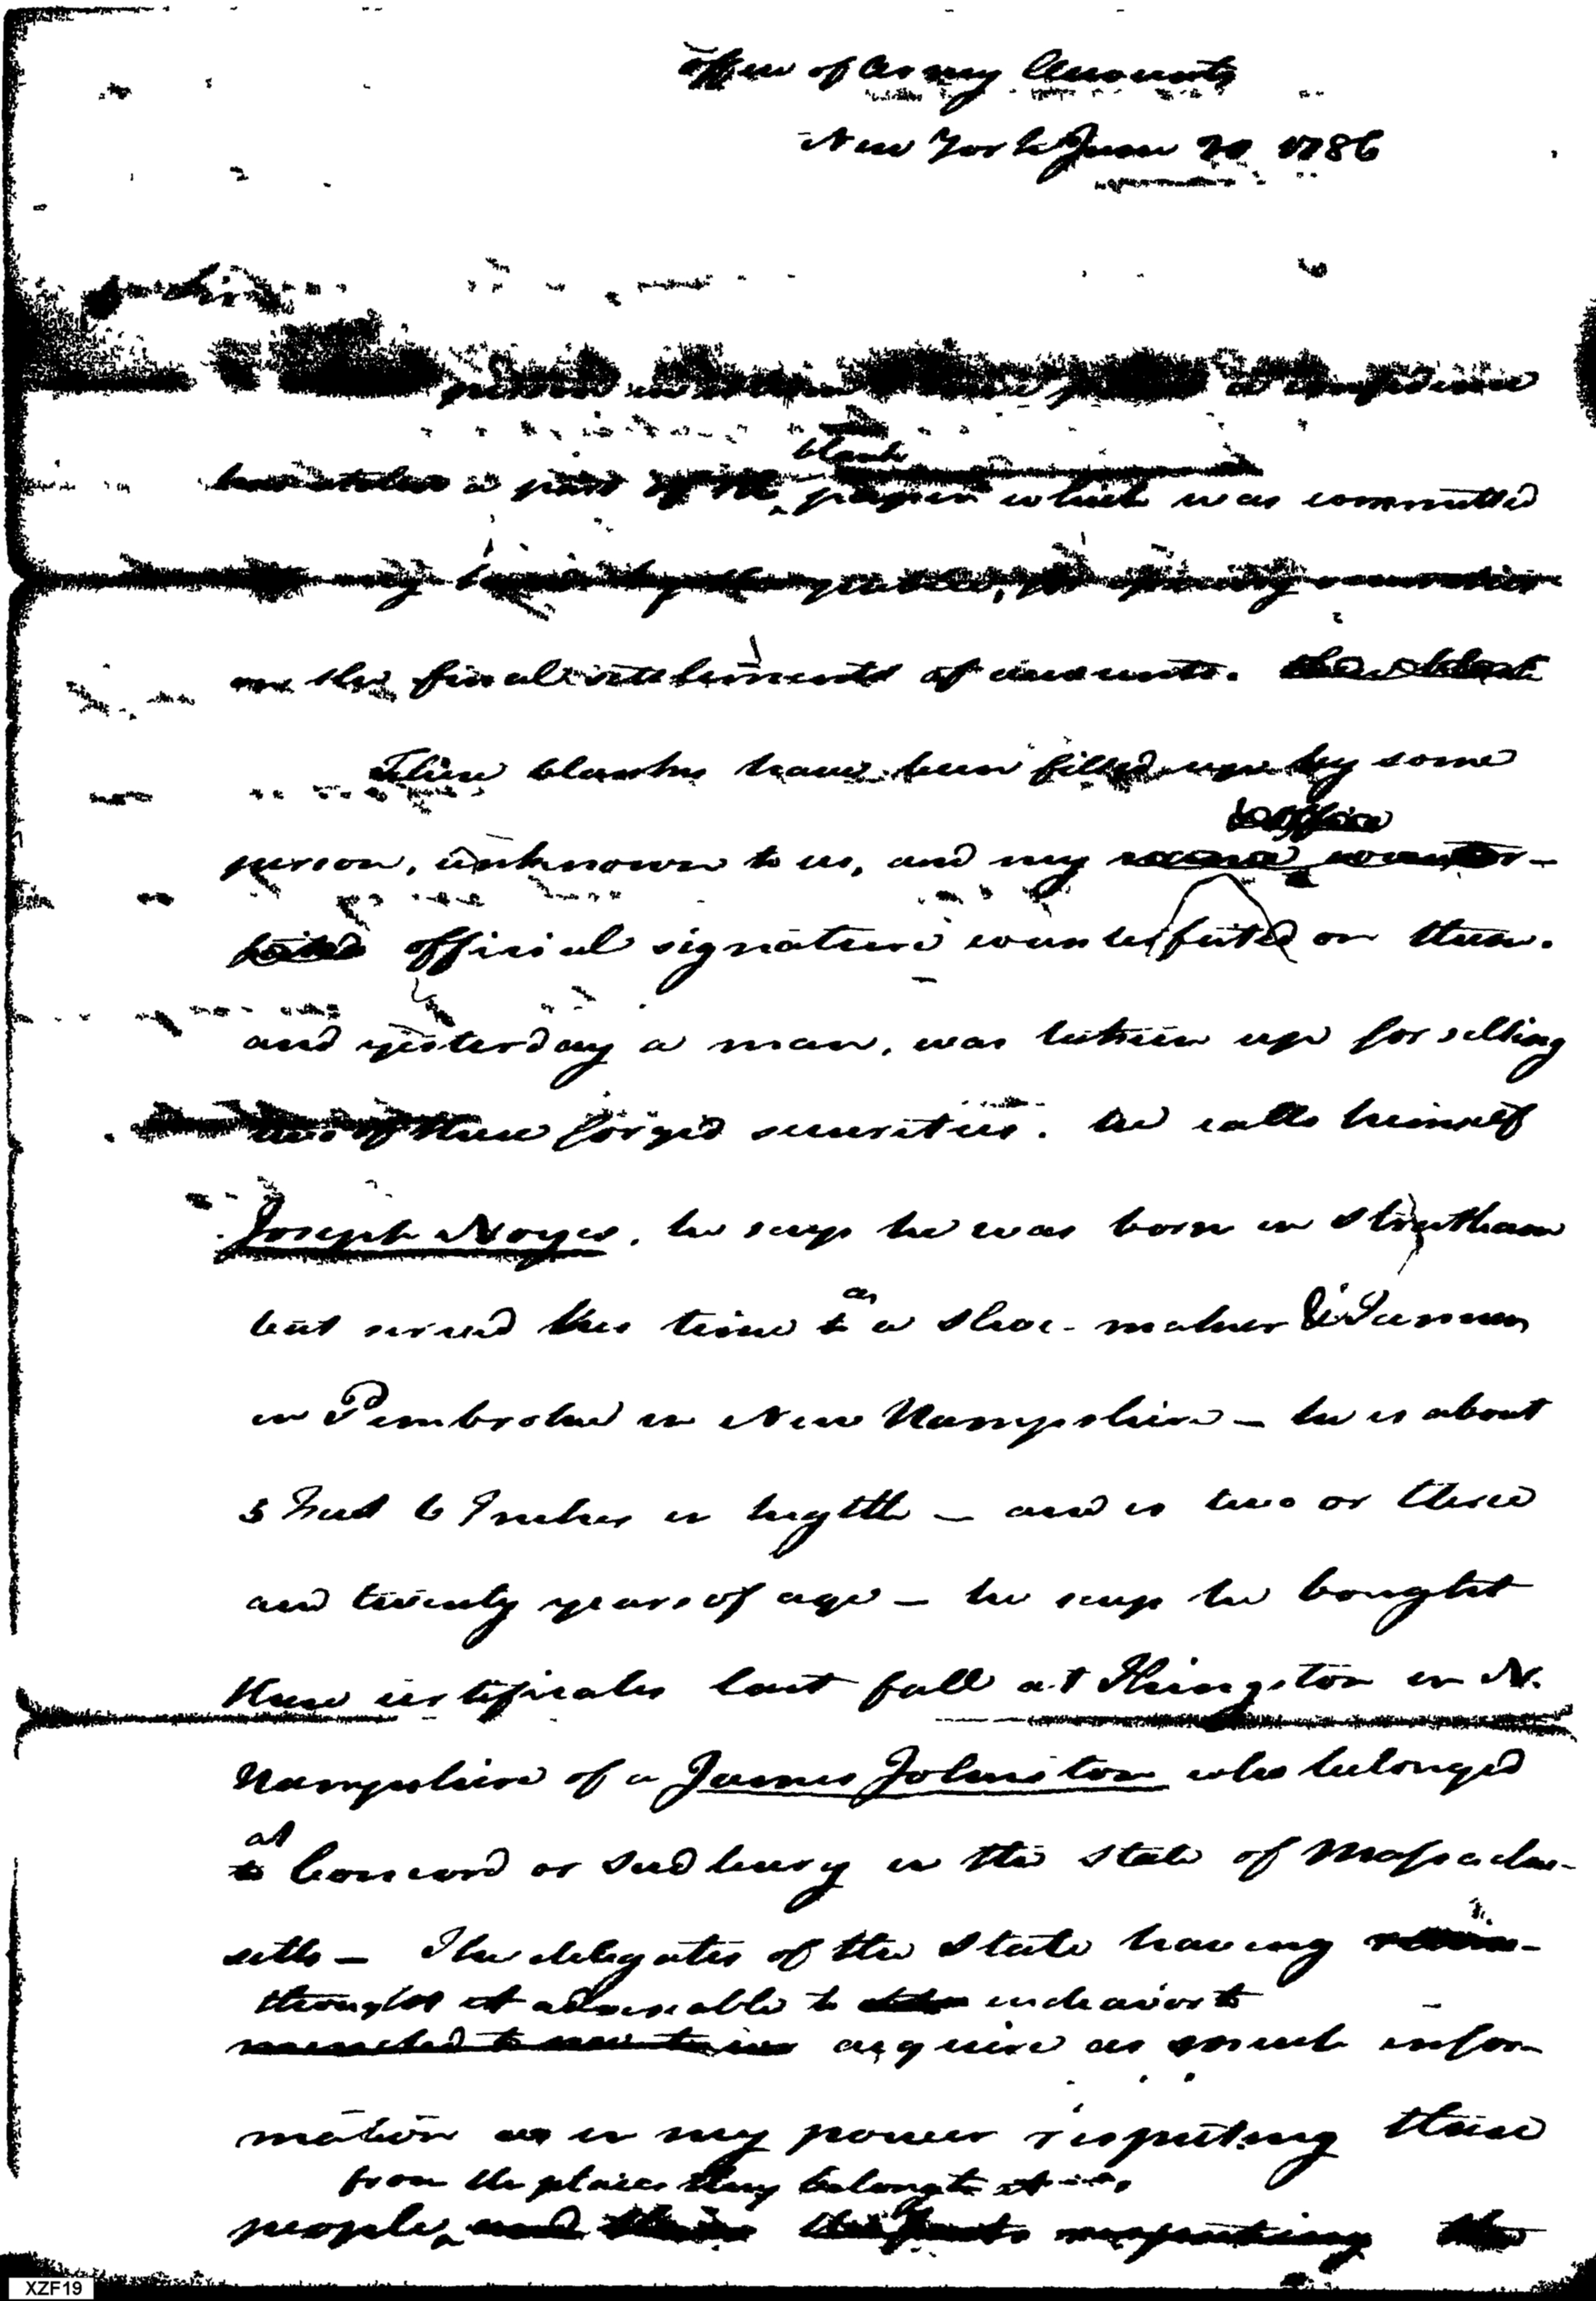 office of Army Accounts
New York June 20 1786
Sir
person in whom placed a confidence
blank
has stolen a part of the paper which was committed
my by the public, for securities
on the final settlements of accounts.
These blanks have been filled up by some
person, unknown to us, and my
official signature counterfeited on them.
and yesterday a man, was taken up for selling
two of these forged securities. he calls himself
Joseph Noyes, he says he was born in Stratham
as
but served his time to a Shoe-maker & Tanner
in Pembroke in New Hampshire – he is about
5 Feet 6 Inches in highth – and is two or three
and twenty years of age – he says he bought
these certificates last fall at Khingston in N.
Hampshire of a James Johnston who belonged
at
to Concord or Sudbury in the State of Massachu-
setts – The delegates of the State having
thought it adviseable to endeavor to
acquire as much infor-
mation as in my power respecting these
from the places they belong to
people
XZF19